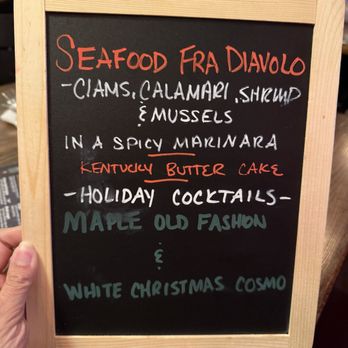 SEAFOOD FRA DIAVOLO
-CLAMS, CALAMARI, SHRIMP
& MUSSELS
IN A SPICY MARINARA
KENTUCKY BUTTER CAKE
-HOLIDAY COCKTAILS-
MAPLE OLD FASHON
&
WHITE CHRISTMAS COSMO